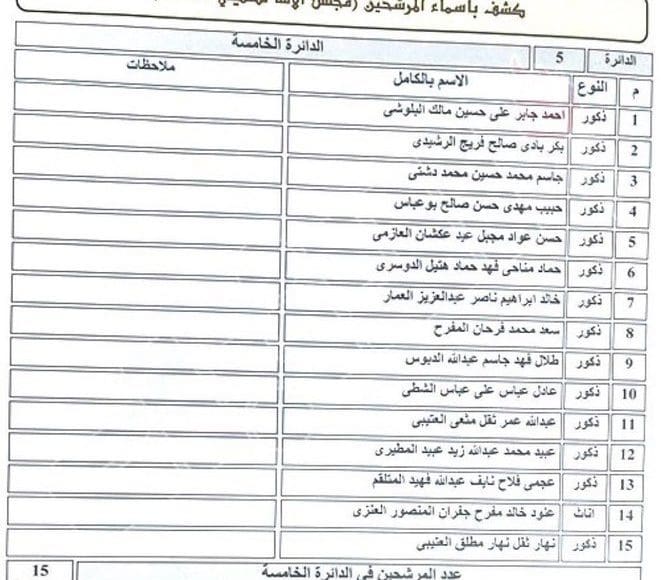 كشف بأسماء المرشحين (مجلس الأمة
الدائرة 5 الدائرة الخامسة
م النوع الاسم بالكامل ملاحظات
1 ذكور احمد جابر على حسين مالك البلوشى
2 ذكور بكر بادى صالح فريج الرشيدى
3 ذكور جاسم محمد حسين محمد دشتى
4 ذكور حبيب مهدى حسن صالح بوعباس
5 ذكور حسن عواد مجبل عبد عكشان العازمى
6 ذكور حماد مناحى فهد حماد هتيل الدوسرى
7 ذكور خالد ابراهيم ناصر عبدالعزيز العمار
8 ذكور سعد محمد فرحان المفرح
9 ذكور طلال فهد جاسم عبدالله الدبوس
10 ذكور عادل عباس على عباس الشطى
11 ذكور عبدالله عمر ثقل مثعى العتيبى
12 ذكور عبيد محمد عبدالله زيد عبيد المطيرى
13 ذكور عجمى فلاح نايف عبدالله فهيد المتلقم
14 اناث عنود خالد مفرح جفران المنصور العنزى
15 ذكور نهار ثقل نهار مطلق العتيبى
عدد المرشحين فى الدائرة الخامسة 15